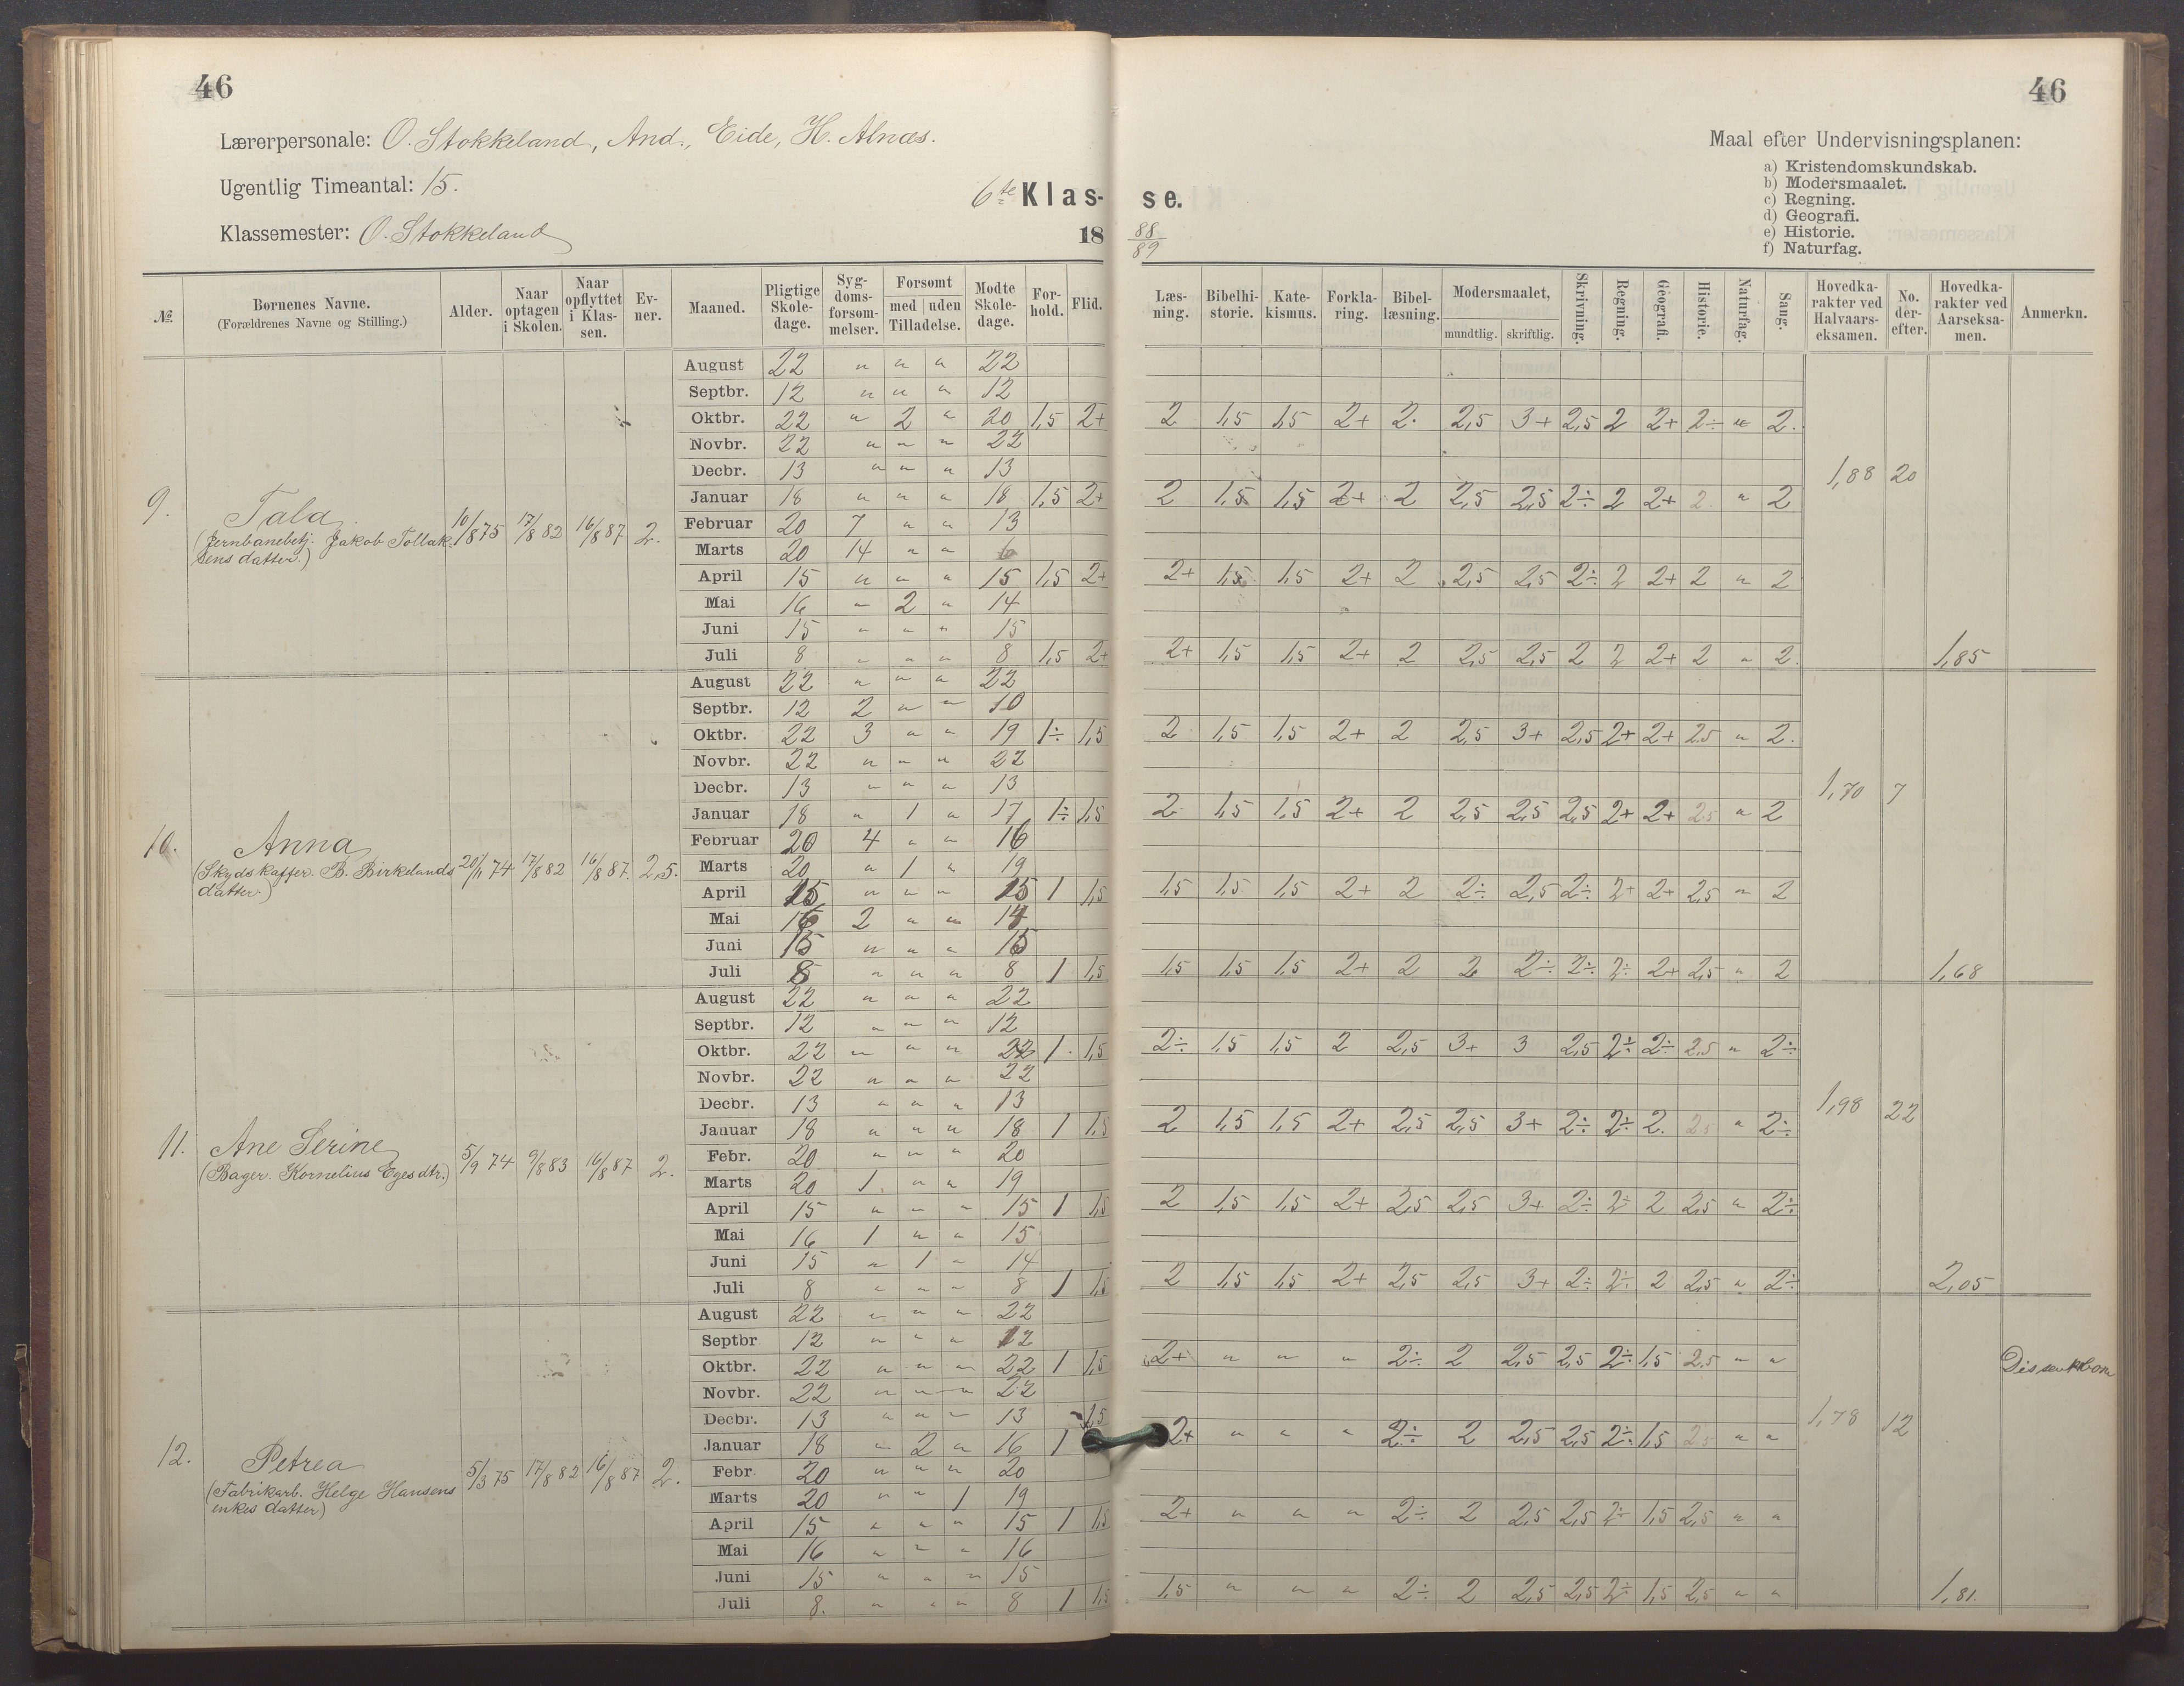 46
46
Lærerpersonale: O. Stokkeland, And. Eide, H. Alnæs.
Ugentlig Timeantal: 15.
Klassemester: O. Stokkeland
6te Klas-
se.
18
88/89
Maal efter Undervisningsplanen:
a) Kristendomskundskab.
b) Modersmaalet.
c) Regning.
d) Geografi.
e) Historie.
f) Naturfag.
№ | Børnenes Navne. (Forældrenes Navne og Stilling.) | Alder. | Naar optagen i Skolen. | Naar opflyttet i Klassen. | Evner. | Maaned. | Pligtige Skoledage. | Sygdomsforsømmelser. | Forsømt med uden Tilladelse. | Mødte Skoledage. | Forhold. | Flid. | Læsning. | Bibelhistorie. | Katekismus. | Forklaring. | Bibellæsning. | Modersmaalet, mundtlig. skriftlig. | Skrivning. | Regning. | Geografi. | Historie. | Naturfag. | Sang. | Hovedkarakter ved Halvaarseksamen. | No. derefter. | Hovedkarakter ved Aarseksamen. | Anmerkn.
9. Tala (Jernbanebetj. Jakob Tollaksens datter.) 10/8 75 17/8 82 16/8 87 2.
August 22 " " " 22
Septbr. 12 " " " 12
Oktbr. 22 " 2 " 20 1,5 2+ 2 1,5 1,5 2+ 2. 2,5 3+ 2,5 2 2+ 2÷ " 2.
Novbr. 22 " " " 22
Decbr. 13 " " " 13 1,88 20
Januar 18 " " " 18 1,5 2+ 2 1,5 1,5 2+ 2 2,5 2,5 2÷ 2 2+ 2 " 2
Februar 20 7 " " 13
Marts 20 14 " " 6
April 15 " " " 15 1,5 2+ 2+ 1,5 1,5 2+ 2 2,5 2,5 2÷ 2 2+ 2 " 2
Mai 16 " 2 " 14
Juni 15 " " " 15
Juli 8 " " " 8 1,5 2+ 2+ 1,5 1,5 2+ 2 2,5 2,5 2 2 2+ 2 " 2. 1,85
10. Anna (Skydskaffer. B. Birkelands datter.) 20/11 74 17/8 82 16/8 87. 2,5.
August 22 " " " 22
Septbr. 12 2 " " 10
Oktbr. 22 3 " " 19 1÷ 1,5 2 1,5 1,5 2+ 2 2,5 3+ 2,5 2+ 2+ 2,5 " 2.
Novbr. 22 " " " 22
Decbr. 13 " " " 13 1,70 7
Januar 18 " 1 " 17 1÷ 1,5 2 1,5 1,5 2+ 2 2,5 2,5 2,5 2+ 2+ 2,5 " 2
Februar 20 4 " " 16
Marts 20 " 1 " 19
April 15 " " " 15 1 1,5 1,5 1,5 1,5 2+ 2 2÷ 2,5 2÷ 2+ 2+ 2,5 " 2
Mai 16 2 " " 14
Juni 15 " " " 15
Juli 8 " " " 8 1 1,5 1,5 1,5 1,5 2+ 2 2 2÷ 2÷ 2÷ 2+ 2,5 " 2 1,68
11. Ane Serine (Bager. Kornelius Eges dtr.) 5/9 74 9/8 83 16/8 87 2.
August 22 " " " 22
Septbr. 12 " " " 12
Oktbr. 22 " " " 22 1. 1,5 2÷ 1,5 1,5 2 2,5 3+ 3 2,5 2÷ 2÷ 2,5 " 2÷
Novbr. 22 " " " 22
Decbr. 13 " " " 13 1,98 22
Januar 18 " " " 18 1 1,5 2 1,5 1,5 2+ 2,5 2,5 3+ 2÷ 2÷ 2. 2,5 " 2÷
Febr. 20 " " " 20
Marts 20 1. " " 19
April 15 " " " 15 1 1,5 2 1,5 1,5 2+ 2,5 2,5 3+ 2÷ 2÷ 2 2,5 " 2÷
Mai 16 1 " " 15
Juni 15 " 1 " 14
Juli 8 " " " 8 1 1,5 2 1,5 1,5 2+ 2,5 2,5 3+ 2÷ 2÷ 2 2,5 " 2÷ 2,05
12. Petrea (Fabrikarb. Helge Hansens enkes datter) 5/3 75 17/8 82 16/8 87 2.
August 22 " " " 22
Septbr 12 " " " 12
Oktbr. 22 " " " 22 1 1,5 2+ " " " 2÷ 2 2,5 2,5 2÷ 1,5 2,5 " "
Novbr. 22 " " " 22
Decbr. 13 " " " 13 1,5 1,78 12
Januar 18 " 2 " 16 1 2+ " " " 2÷ 2 2,5 2,5 2÷ 1,5 2,5 " "
Febr. 20 " " " 20
Marts 20 " " 1 19
April 15 " " " 15 1 1,5 2+ " " " 2÷ 2 2,5 2,5 2÷ 1,5 2,5 " "
Mai 16 " " " 16
Juni 15 " " " 15
Juli 8. " " " 8 1 1,5 1,5 " " " 2÷ 2 2,5 2,5 2÷ 1,5 2,5 " " 1,81.